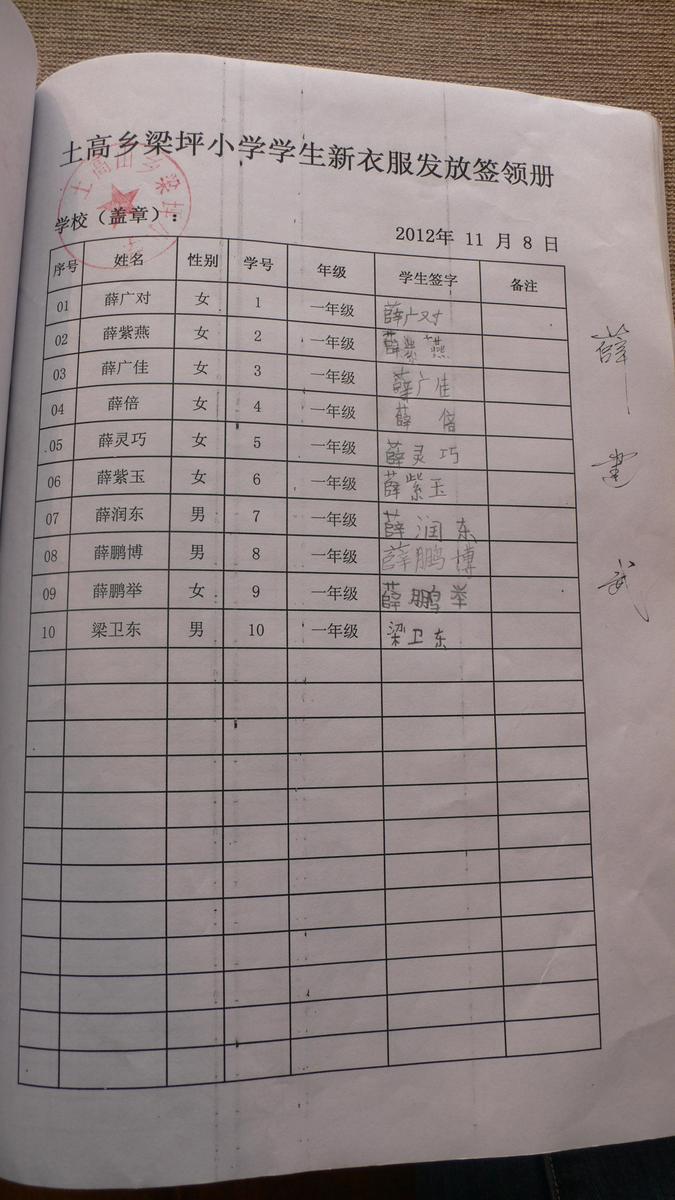 土高乡梁坪小学学生新衣服发放签领册
土高山乡梁坪小学
学校（盖章）：
2012年 11 月 8 日
序号 姓名 性别 学号 年级 学生签字 备注
01 薛广对 女 1 一年级 薛广对
02 薛紫燕 女 2 一年级 薛紫燕
03 薛广佳 女 3 一年级 薛广佳
04 薛倍 女 4 一年级 薛倍
05 薛灵巧 女 5 一年级 薛灵巧
06 薛紫玉 女 6 一年级 薛紫玉
07 薛润东 男 7 一年级 薛润东
08 薛鹏博 男 8 一年级 薛鹏博
09 薛鹏举 女 9 一年级 薛鹏举
10 梁卫东 男 10 一年级 梁卫东
薛
武